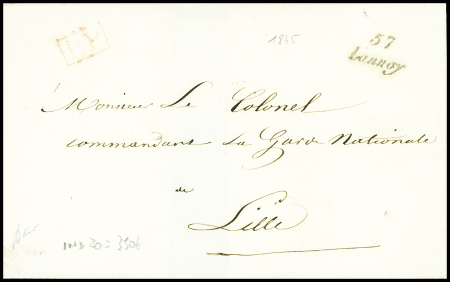 P.P.
1845
57
Lannoy
Monsieur Le Colonel
commandant La Garde Nationale
de
Lille
ind 20 = 350€